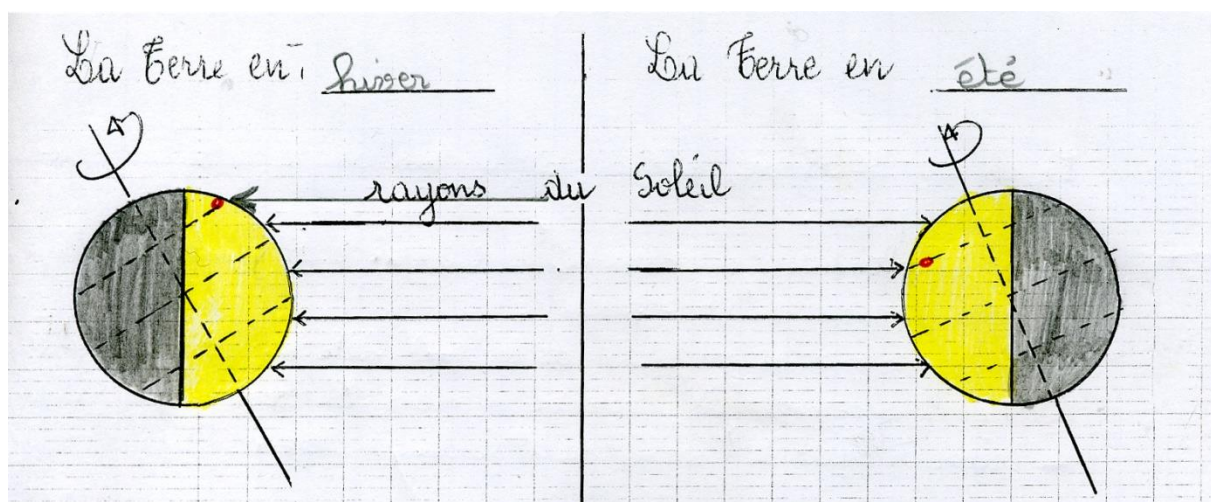 La Terre en hiver
La Terre en été
rayons du Soleil